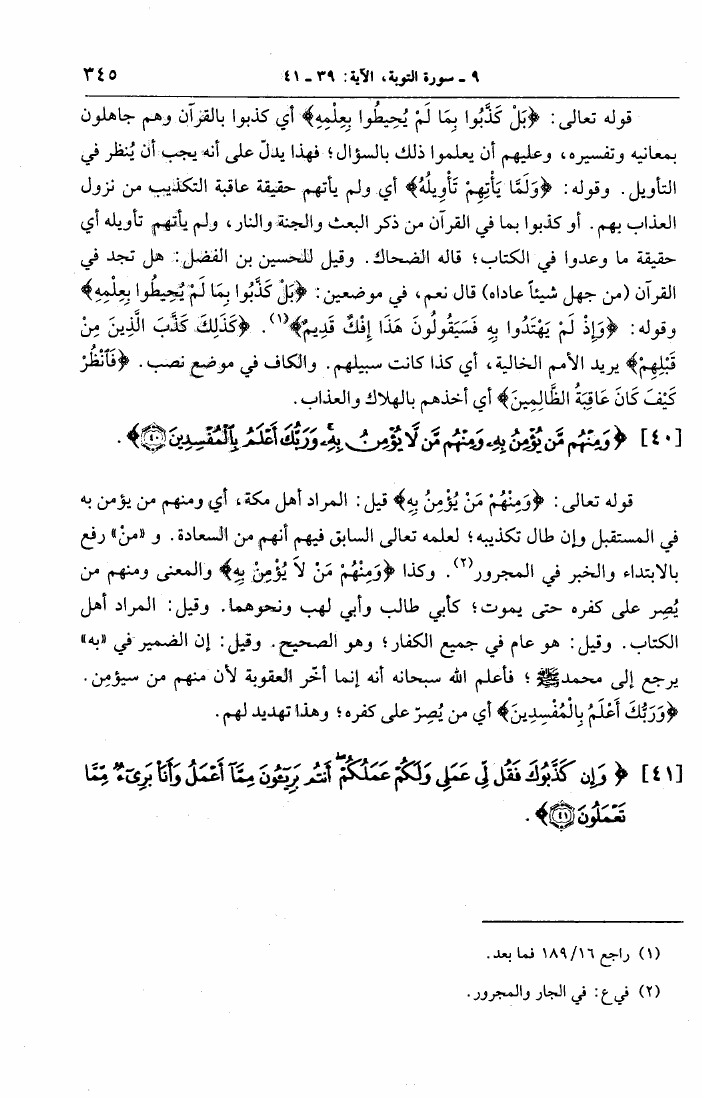 ٩ ـ سورة التوبة، الآية: ٣٩ ـ ٤١
٣٤٥
قوله تعالى: ﴿بَلْ كَذَّبُوا بِمَا لَمْ يُحِيطُوا بِعِلْمِهِ﴾ أي كذبوا بالقرآن وهم جاهلون
بمعانيه وتفسيره، وعليهم أن يعلموا ذلك بالسؤال؛ فهذا يدلّ على أنه يجب أن يُنظر في
التأويل. وقوله: ﴿وَلَمَّا يَأْتِهِمْ تَأْوِيلُهُ﴾ أي ولم يأتهم حقيقة عاقبة التكذيب من نزول
العذاب بهم. أو كذبوا بما في القرآن من ذكر البعث والجنة والنار، ولم يأتهم تأويله أي
حقيقة ما وعدوا في الكتاب؛ قاله الضحاك. وقيل للحسين بن الفضل: هل تجد في
القرآن (من جهل شيئاً عاداه) قال نعم، في موضعين: ﴿بَلْ كَذَّبُوا بِمَا لَمْ يُحِيطُوا بِعِلْمِهِ﴾
وقوله: ﴿وَإِذْ لَمْ يَهْتَدُوا بِهِ فَسَيَقُولُونَ هَذَا إِفْكٌ قَدِيمٌ﴾(١). ﴿كَذَلِكَ كَذَّبَ الَّذِينَ مِنْ
قَبْلِهِمْ﴾ يريد الأمم الخالية، أي كذا كانت سبيلهم. والكاف في موضع نصب. ﴿فَٱنْظُرْ
كَيْفَ كَانَ عَاقِبَةُ الظَّالِمِينَ﴾ أي أخذهم بالهلاك والعذاب.
[٤٠] ﴿وَمِنْهُم مَّن يُؤْمِنُ بِهِۦ وَمِنْهُم مَّن لَّا يُؤْمِنُ بِهِۦۚ وَرَبُّكَ أَعْلَمُ بِٱلْمُفْسِدِينَ ۝٤٠﴾.
قوله تعالى: ﴿وَمِنْهُمْ مَنْ يُؤْمِنُ بِهِ﴾ قيل: المراد أهل مكة، أي ومنهم من يؤمن به
في المستقبل وإن طال تكذيبه؛ لعلمه تعالى السابق فيهم أنهم من السعادة. و «منْ» رفع
بالابتداء والخبر في المجرور(٢). وكذا ﴿وَمِنْهُمْ مَنْ لاَ يُؤْمِنْ بِهِ﴾ والمعنى ومنهم من
يُصِر على كفره حتى يموت؛ كأبي طالب وأبي لهب ونحوهما. وقيل: المراد أهل
الكتاب. وقيل: هو عام في جميع الكفار؛ وهو الصحيح. وقيل: إن الضمير في «به»
يرجع إلى محمدﷺ؛ فأعلم الله سبحانه أنه إنما أخّر العقوبة لأن منهم من سيؤمن.
﴿وَرَبُّكَ أَعْلَمُ بِالْمُفْسِدِينَ﴾ أي من يُصِرّ على كفره؛ وهذا تهديد لهم.
[٤١] ﴿وَإِن كَذَّبُوكَ فَقُل لِّي عَمَلِي وَلَكُمْ عَمَلُكُمْۖ أَنتُم بَرِيٓـُٔونَ مِمَّآ أَعْمَلُ وَأَنَا۠ بَرِيٓءٌ مِّمَّا
تَعْمَلُونَ ۝٤١﴾.
(١) راجع ١٨٩/١٦ فما بعد.
(٢) في ع: في الجار والمجرور.